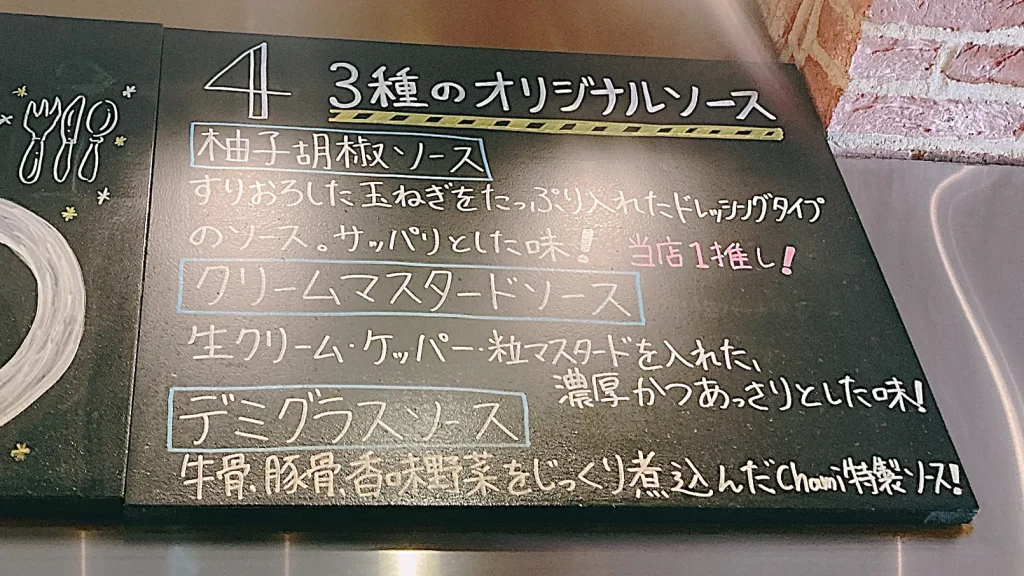 4 3種のオリジナルソース
柚子胡椒ソース
すりおろした玉ねぎをたっぷり入れたドレッシングタイプ
のソース。サッパリとした味! 当店1推し!
クリームマスタードソース
生クリーム・ケッパー・粒マスタードを入れた、
濃厚かつあっさりとした味!
デミグラスソース
牛骨、豚骨、香味野菜をじっくり煮込んだChami特製ソース!